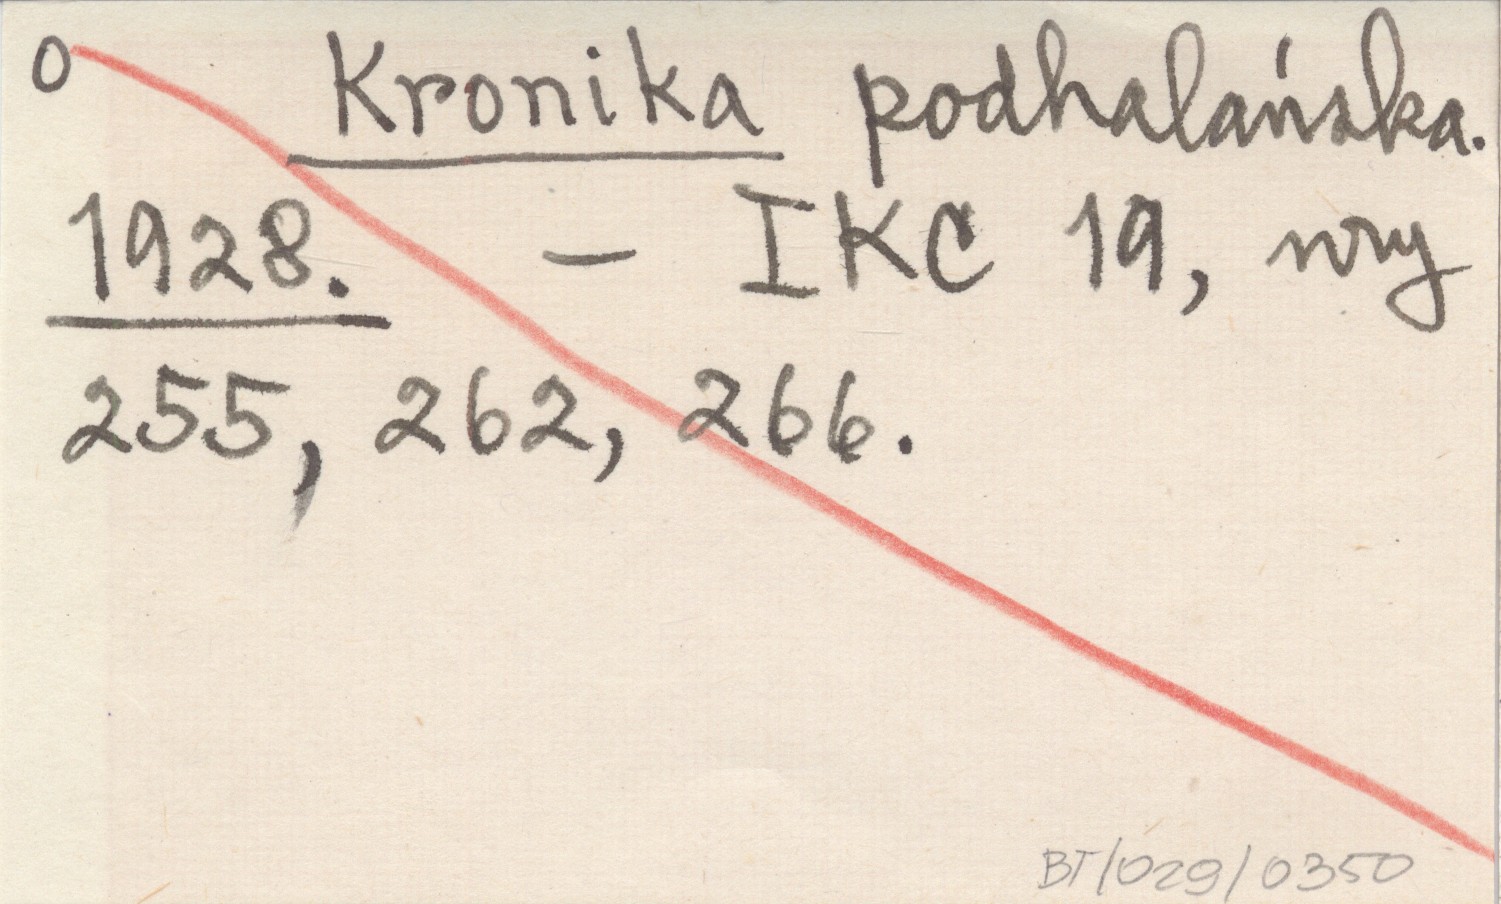 0 Kronika podhalańska.
1928. – IKC 19, nry
255, 262, 266.
BT/029/0350